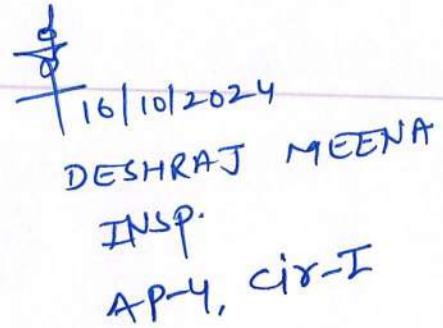 16/10/2024
DESHRAJ MEENA
INSP.
AP-4, Cir-I